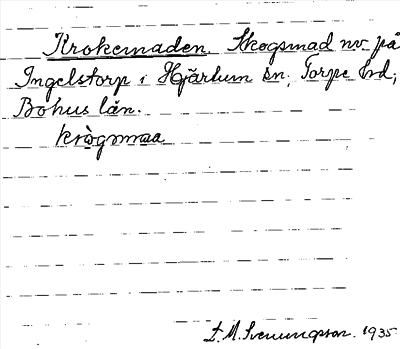 Krokemaden. Skogsmad nv. på
Ingelstorp i Hjärtum sn, Torpe hd,
Bohus län.
krògsmaa
L. M. Svenungsson. 1935